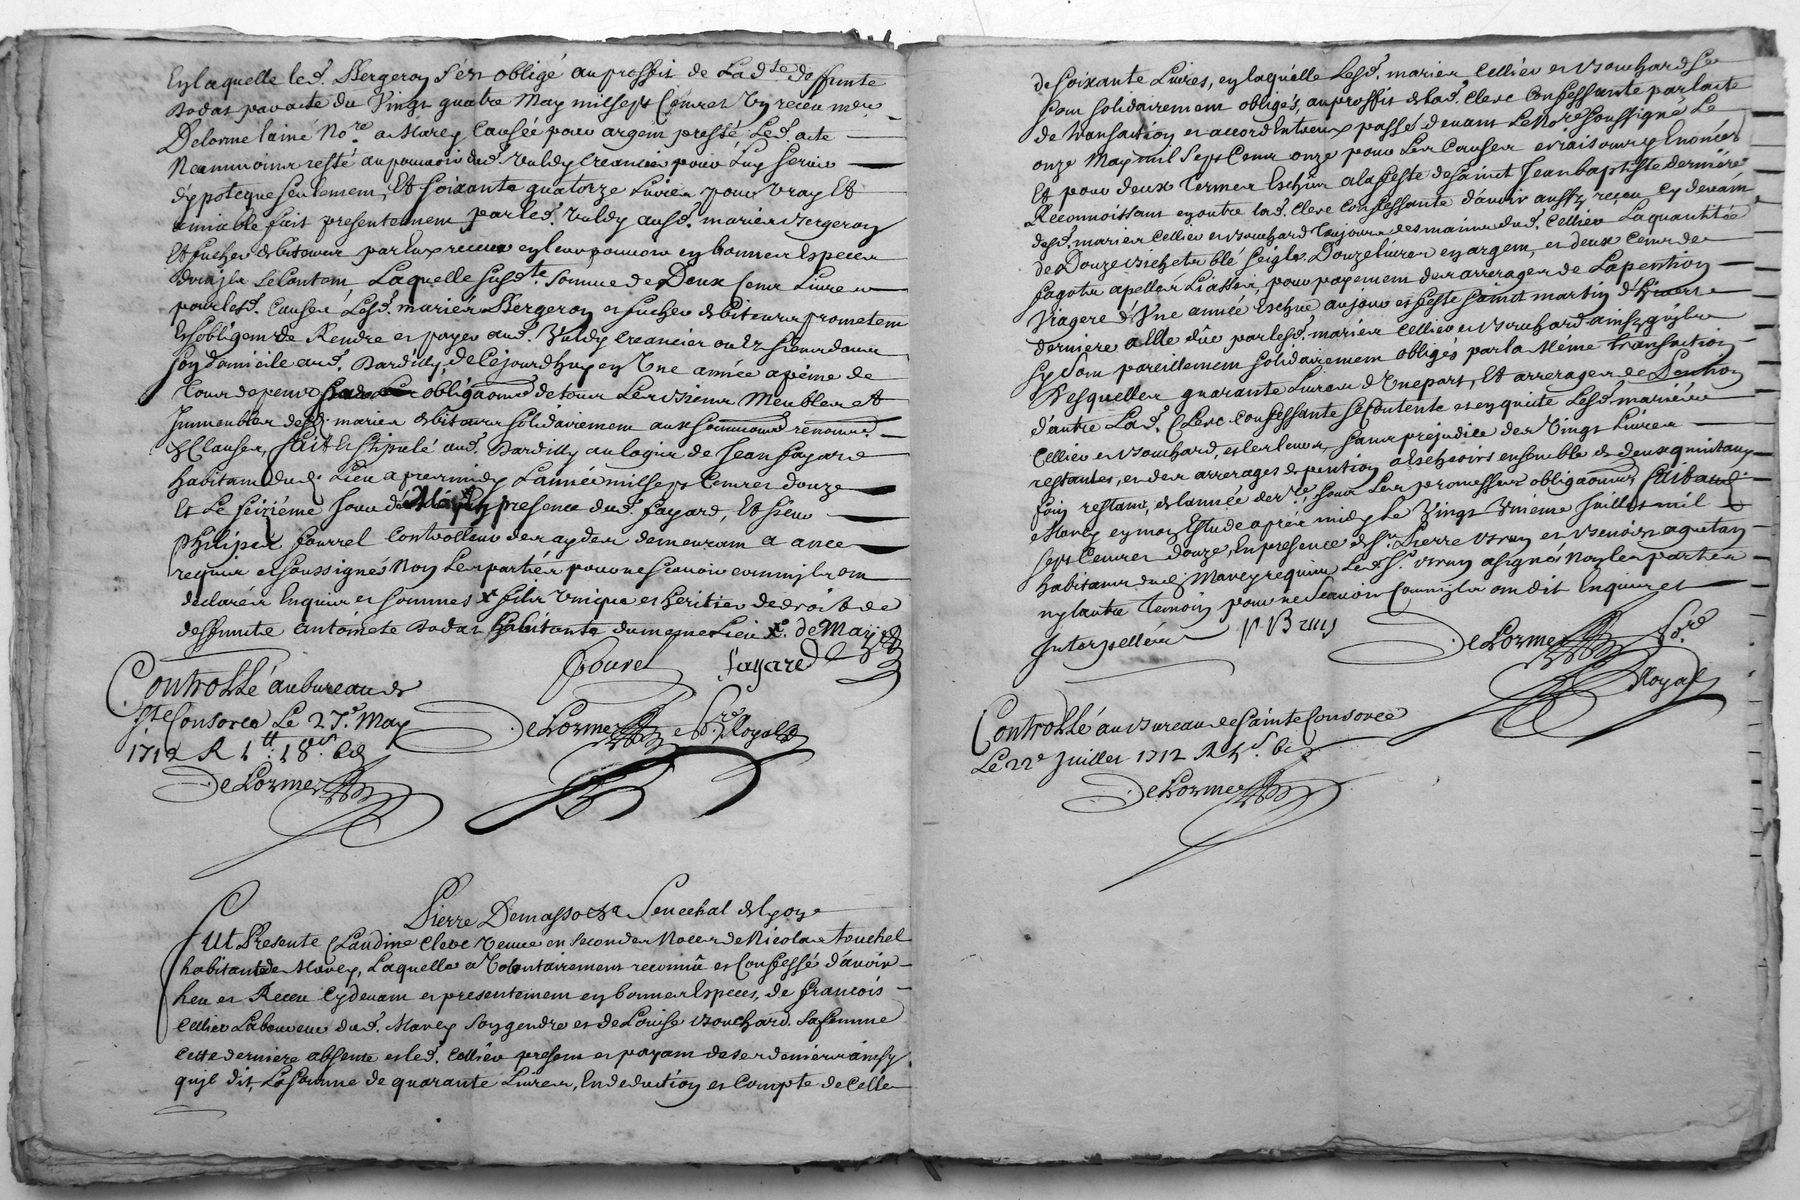 Enlaquelle led. Bergeron s'est obligé au proffit de lad.te deffunte
Dodat par acte du Vingt quatre May mil sept Cent receu me
Delorme laine No.re a Marcy Causée pour argent presté, led. acte
Neammoins resté au pouvoir dud. Valdy Creancier pour luy servir
d'ypoteque seulement, Et soixante quatorze Livres pour vray Et
amiable fait presentement par led. Valdy ausd. mariés Bergeron
Et fucher debiteurs par Eux receue en leur pouvoir en bonnes Especes
dont ils se Contem, Laquelle susd.te somme de Deux Cent Livres
pour lesd. Causes Lesd. mariés Bergeron et fucher debiteurs prometem
Et s'obligem de Rendre et payer aud. Valdy Creancier ou
son domicile aud. Dardilly, de Cejourdhuy en Une année apeine de
tous depens obligaons de tous Les biens Meubles et
Immeubles desd. mariés debiteurs solidairement aux sommaons renonons
& Clauses, fait Et stipulé aud. Dardilly au logis de Jean fayard
habitant dud. Lieu apresmidy L'année mil sept Cent douze
Et Le seizième Jour de May En presence dud. fayard, Et sieur
Philipes fourrel Controlleur des aydes demeurant a ance
requis et soussignés Non Les parties pour ne scavoir comme ils ont
declaré Enquis et sommés x fils unique et heritier de droit de
deffunte antoinete Dodat habitante du meme Lieu x. de May
fourel Fayard
Controllé au bureau de
Ste Consorce Le 27.e May
1712 R 1tt: 18s: 6d
DeLorme
DeLorme No.re Royal
Pierre Demasso Senechal de Lyon
fut Presente Claudine Clerc veuve en secondes Noces de Nicolas touchel
habitante de Marcy, Laquelle a Volontairement reconnû et Confessé d'avoir
heu et Receu Cydevant et presentement en bonnes Especes, de françois
Cellier Laboureur dud. Marcy son gendre et de Louise Bouchard sa femme
Cette derniere absente et led. Cellier present et payant de ses deniers ainsy
quil dit, La somme de quarante Livres, En deduction et Compte de Celle
de soixante Livres, en laquelle Lesd. mariés Cellier et Bouchard se
sont solidairement obligés, au proffit de lad. Clerc Confessante par l'acte
de transaction et accord Entreux passé devant Le No.re soussigné Le
onze May mil Sept Cent onze pour Les Causes et raisons y Enoncées
Et pour deux termes Escheus a la feste de saint Jean baptiste derniere
Reconnoissant en outre lad. Clerc Confessante d'avoir aussy receu Cy devant
desd. mariés Cellier et Bouchard toujours des mains dud. Cellier La quantitée
de Douze bichets blé seigle, Douze livres en argent, et deux Cent de
fagots apellés Liasses, pour payement des arrerages de La pention
Viagere d'Une année Escheue au jour et feste saint martin d'hivert
derniere a Elle dûe par lesd. mariés Cellier et Bouchard ainsy quils
sy sont pareillement solidairement obligés par la Même transaction
Desquelles quarante Livres d'Une part, Et arrerages de Pention
d'autre La d. Clerc Confessante se Contente et en quitte Lesd. mariés
Cellier et Bouchard, et les leurs, sans prejudice des Vingt Livres
restantes, et des arrerages de pention a Eschoirs ensemble de deux quintaux
foin restants de l'année der.re sous Les promesses obligaons fait aud.
Marcy en mon Estude aprés midy Le Vingt Unième Juillet mil
sept Cent douze, En presence de S.r Pierre Brun et Benoist aquetan
habitans dud. Marcy requis Led. S.r Brun a signé Non les parties
ny l'autre temoin pour ne scavoir Comme ils ont dit Enquis et
Interpellés P Brun
DeLorme No.re
Royal
Controllé au Bureau de Sainte Consorce
Le 22e Juillet 1712 R 5s. 6d
DeLorme